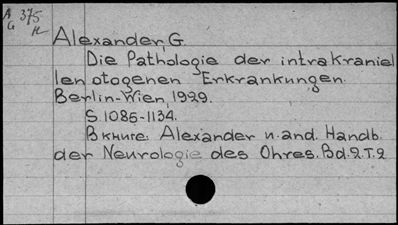 A 375
G
Alexander, G.
Die Pathologie der intrakraniel
len otogenen Erkrankungen.
Berlin-Wien, 1929.
S. 1085-1134.
В книге: Alexander u. and. Handb.
der Neurologie des Ohres. Bd. 2. T. 2